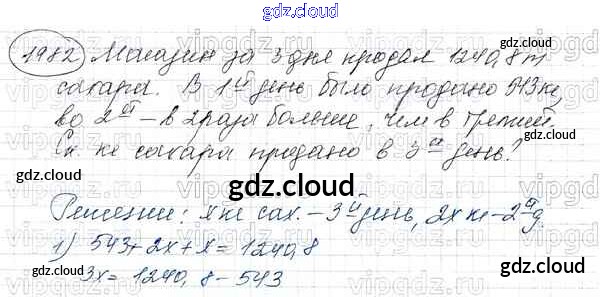 gdz.cloud
1982 Магазин за 3 дня продал 1240,8 кг
сахара. В 1й день было продано 543 кг,
во 2й – в 2 раза больше, чем в третий.
Ск. кг сахара продано в 3й день?
gdz.cloud gdz.cloud
Решение: x кг сах. – 3й день, 2x кг – 2й д.
1) 543 + 2x + x = 1240,8
3x = 1240,8 – 543
gdz.cloud gdz.cloud